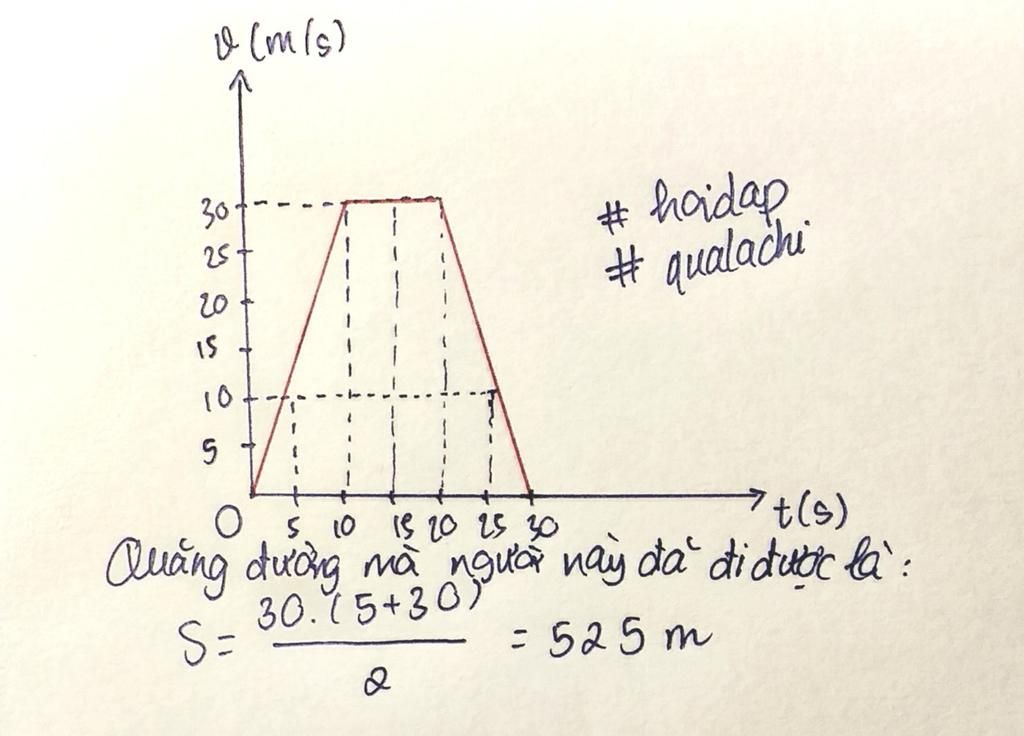 v (m/s)
30
25
20
15
10
5
O
5 10 15 20 25 30
t(s)
# hoidap
# qualachi
Quãng đường mà người này đã đi được là:
S = 30.(5+30) / 2 = 525 m